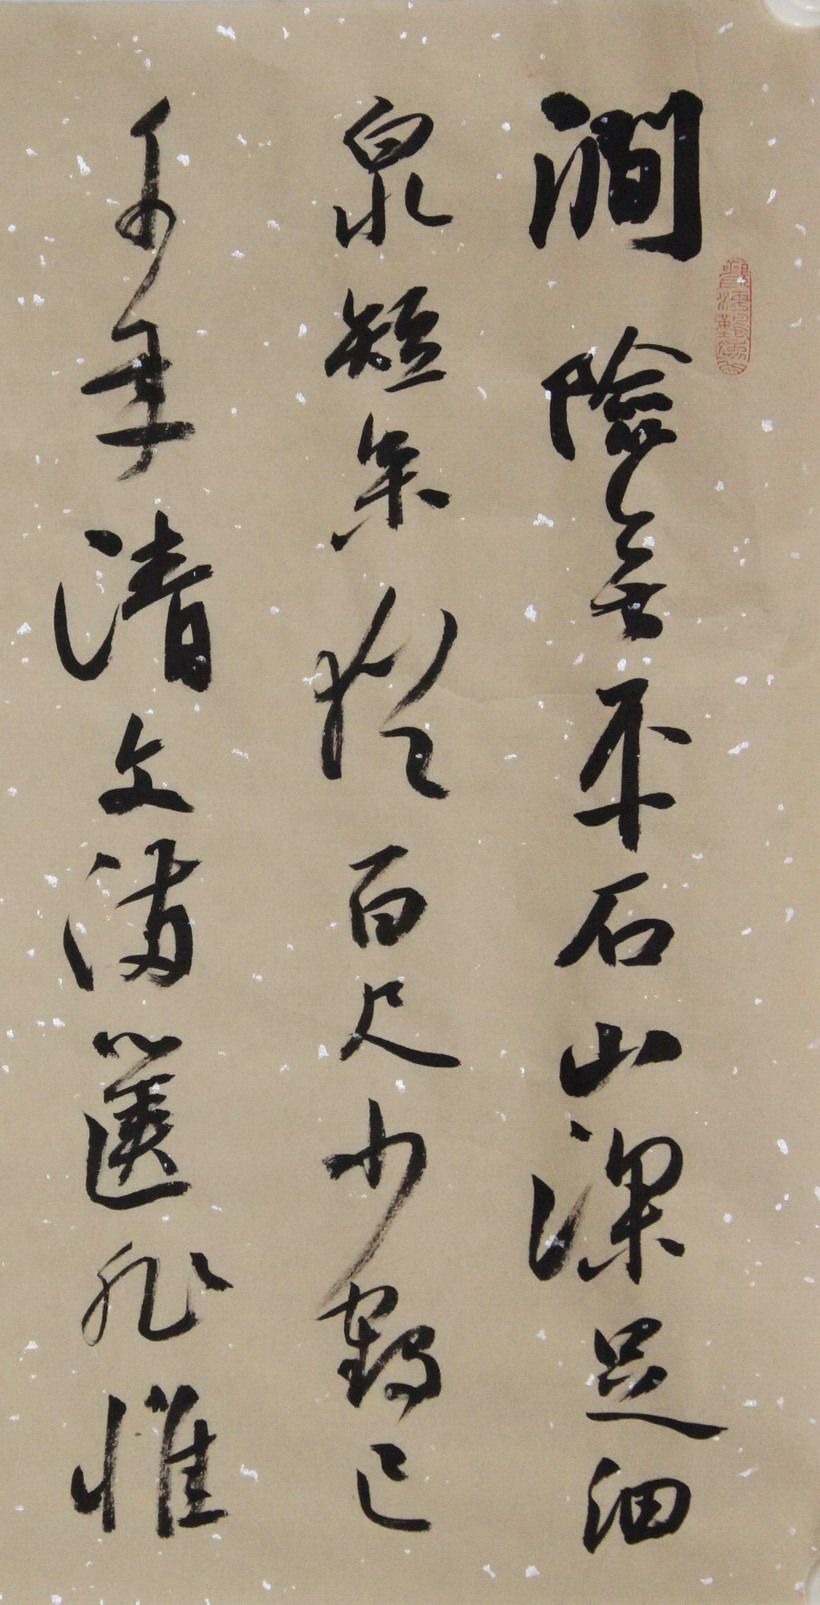 澗險無平石山深足細
泉短松猶百尺少鶴已
千年清文滿篋非惟